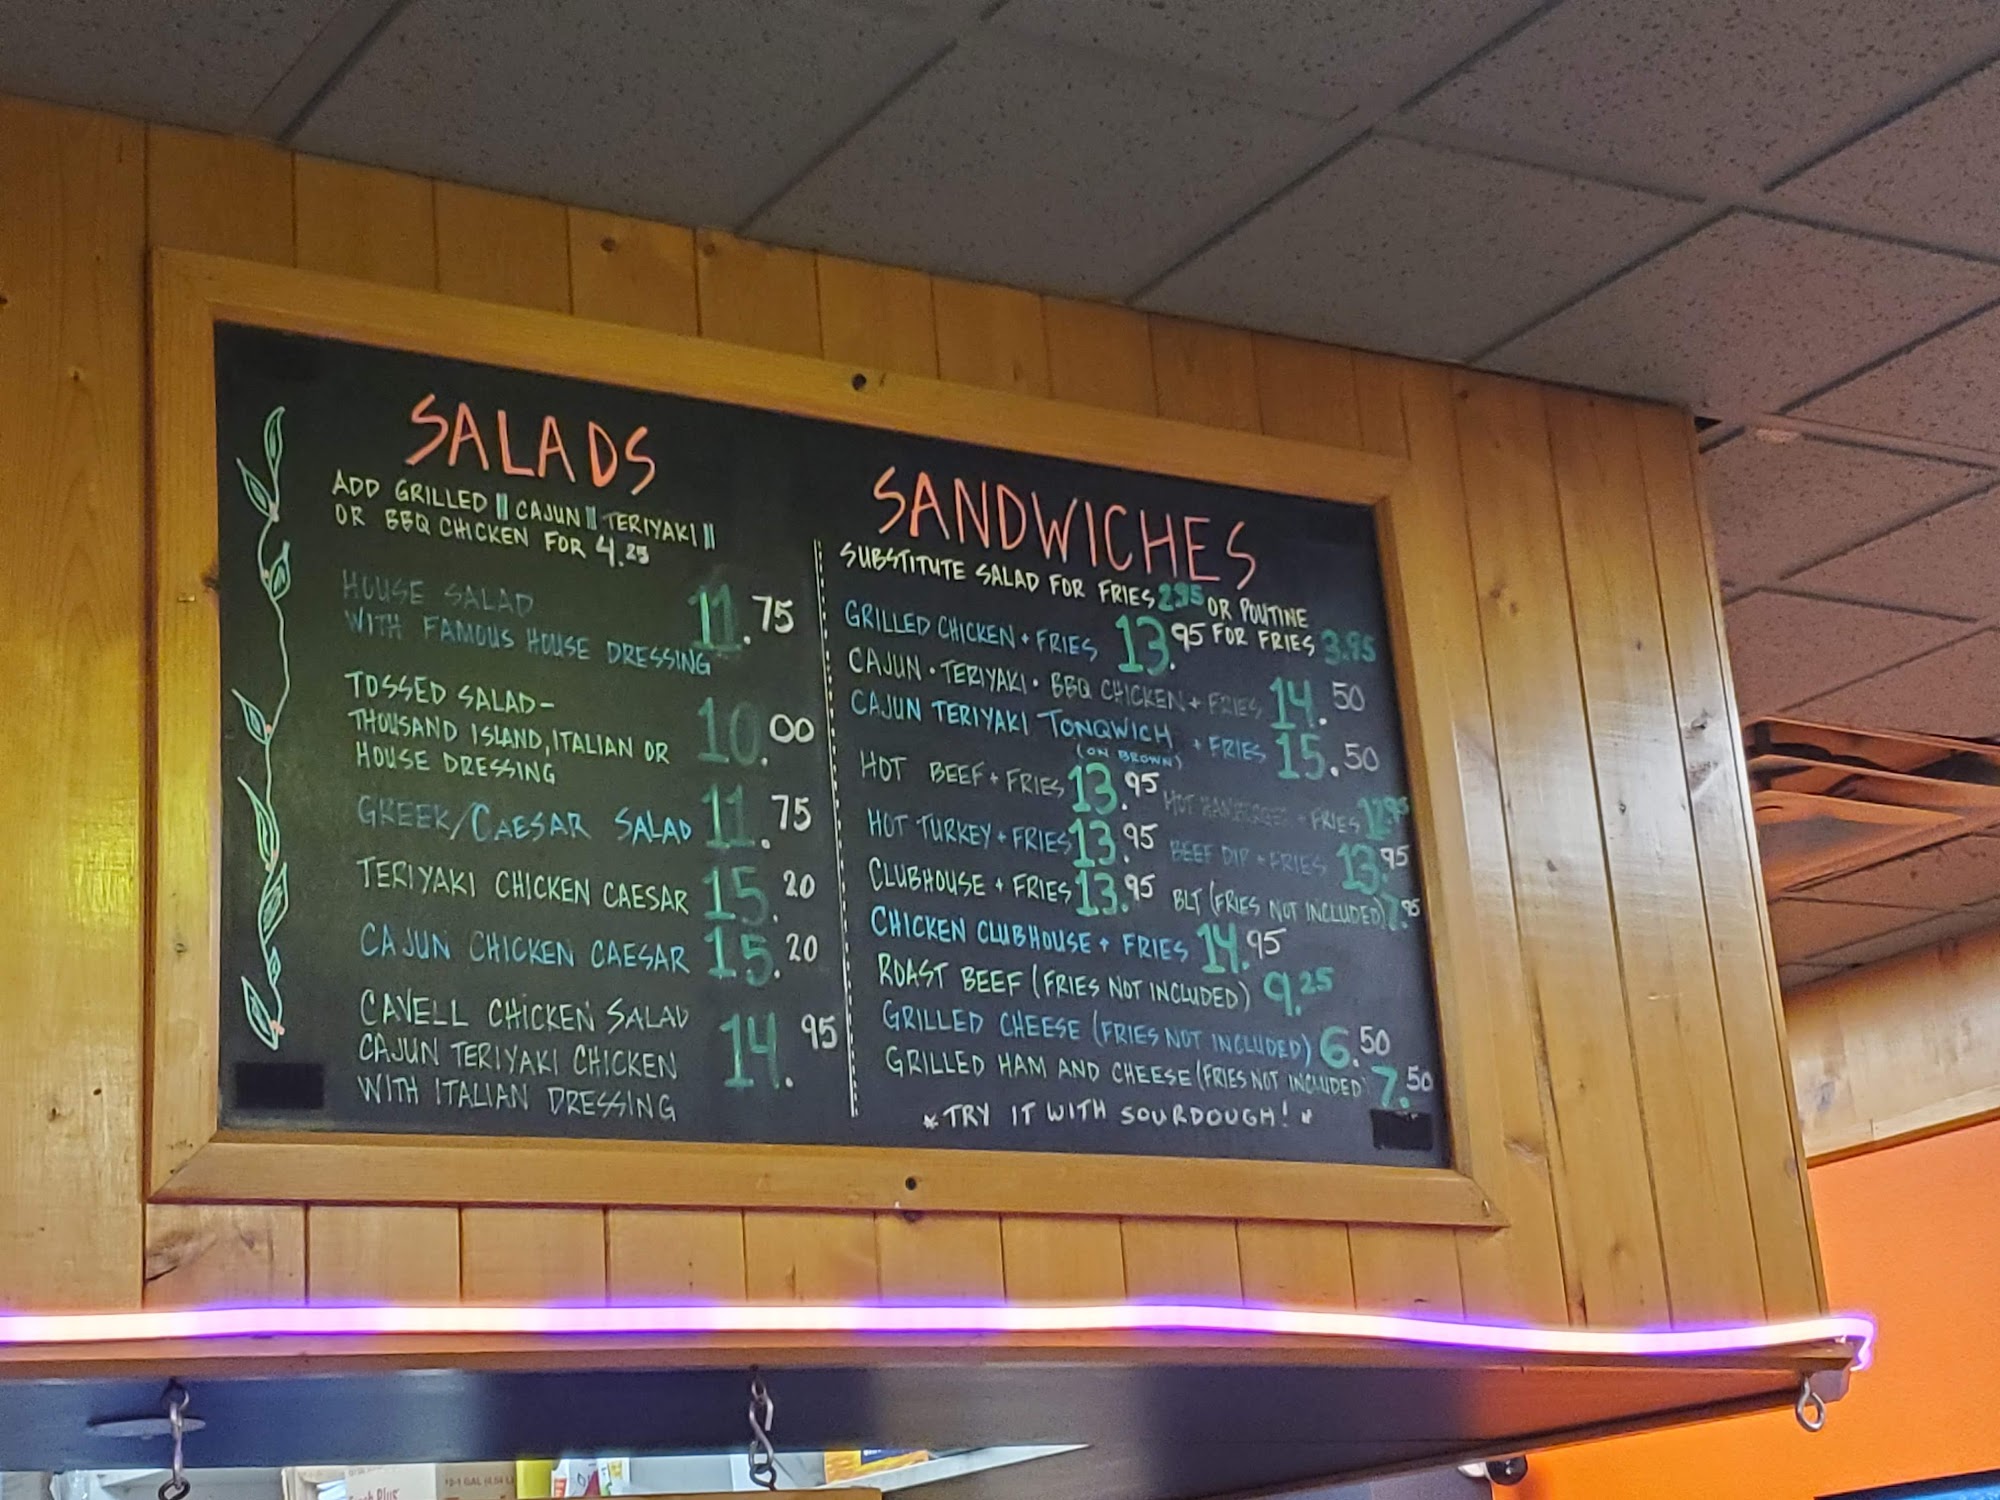 SALADS
ADD GRILLED || CAJUN || TERIYAKI ||
OR BBQ CHICKEN FOR 4.25
HOUSE SALAD
WITH FAMOUS HOUSE DRESSING 11.75
TOSSED SALAD-
THOUSAND ISLAND, ITALIAN OR
HOUSE DRESSING 10.00
GREEK/CAESAR SALAD 11.75
TERIYAKI CHICKEN CAESAR 15.20
CAJUN CHICKEN CAESAR 15.20
CAVELL CHICKEN SALAD
CAJUN TERIYAKI CHICKEN 14.95
WITH ITALIAN DRESSING
SANDWICHES
SUBSTITUTE SALAD FOR FRIES 2.95 OR POUTINE
FOR FRIES 3.95
GRILLED CHICKEN + FRIES 13.95
CAJUN · TERIYAKI · BBQ CHICKEN + FRIES 14.50
CAJUN TERIYAKI TONQWICH + FRIES 15.50
(ON BROWN)
HOT BEEF + FRIES 13.95 HOT HAMBURGER + FRIES 12.95
HOT TURKEY + FRIES 13.95 BEEF DIP + FRIES 13.95
CLUBHOUSE + FRIES 13.95 BLT (FRIES NOT INCLUDED) 7.95
CHICKEN CLUBHOUSE + FRIES 14.95
ROAST BEEF (FRIES NOT INCLUDED) 9.25
GRILLED CHEESE (FRIES NOT INCLUDED) 6.50
GRILLED HAM AND CHEESE (FRIES NOT INCLUDED) 7.50
* TRY IT WITH SOURDOUGH! *